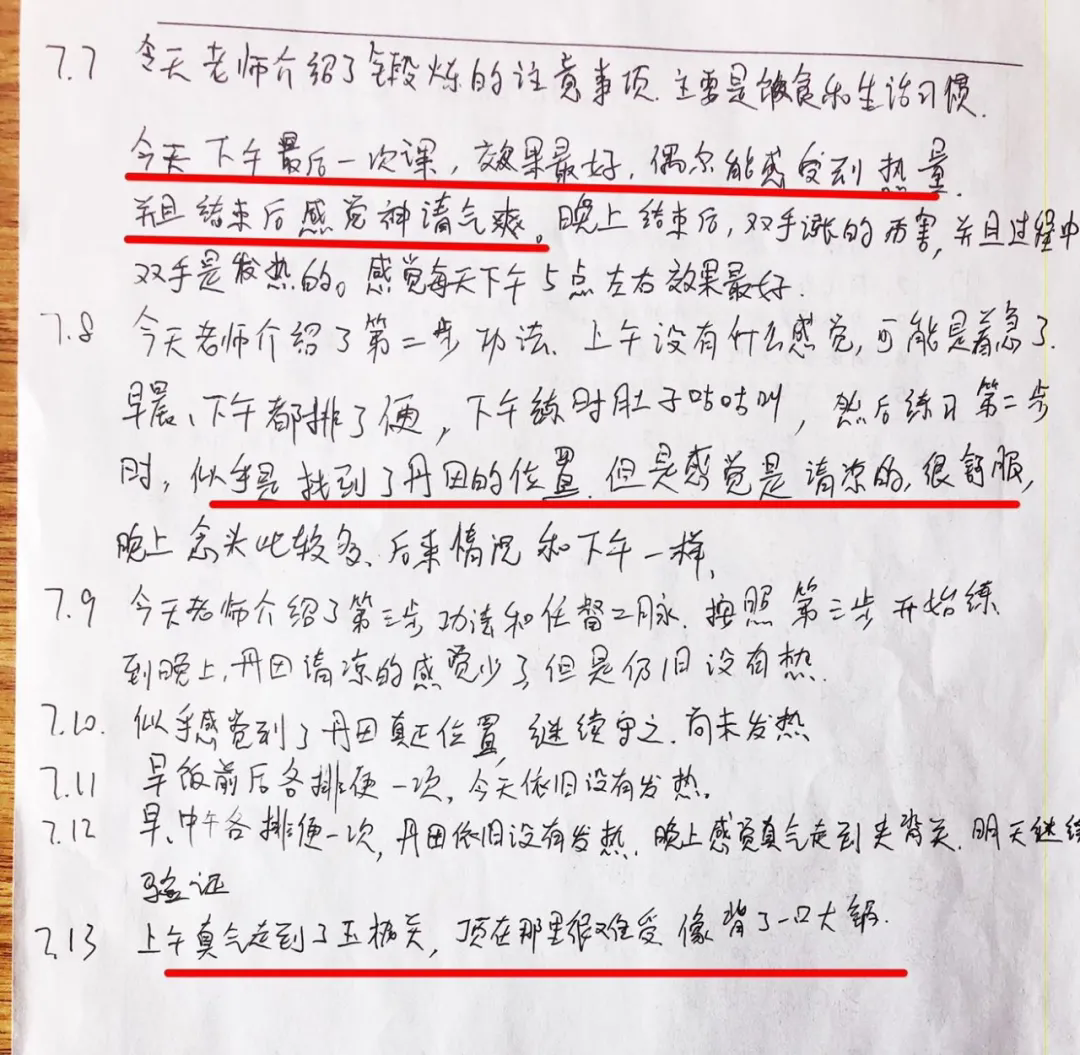 7.7 今天老师介绍了锻炼的注意事项.主要是饮食和生活习惯.
今天下午最后一次课,效果最好,偶尔能感受到热量.
并且结束后感觉神清气爽。晚上结束后,双手涨的厉害,并且过程中
双手是发热的。感觉每天下午5点左右效果最好.
7.8 今天老师介绍了第二步功法.上午没有什么感觉,可能是着急了.
早晨、下午都排了便,下午练时肚子咕咕叫,然后练习第二步
时,似乎是找到了丹田的位置.但是感觉是清凉的,很舒服,
晚上念头比较多、后来情况和下午一样,
7.9 今天老师介绍了第三步功法和任督二脉.按照第三步开始练
到晚上,丹田清凉的感觉少了,但是仍旧没有热.
7.10. 似乎感觉到了丹田真正位置,继续守之.尚未发热
7.11 早饭前后各排便一次,今天依旧没有发热.
7.12 早、中午各排便一次,丹田依旧没有发热.晚上感觉真气走到夹脊关.明天继续
验证
7.13 上午真气走到了玉枕关,顶在那里很难受像背了一口大锅.